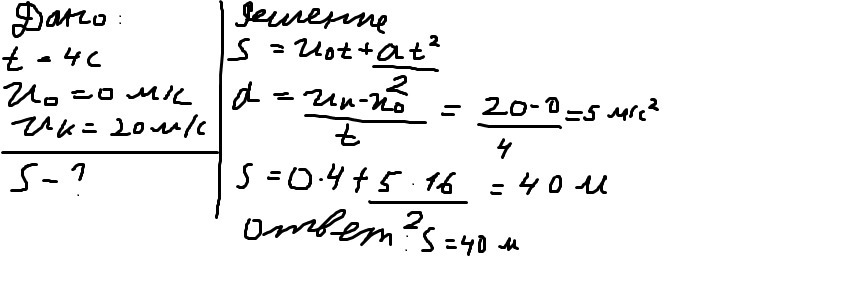 Дано:
t - 4с
u₀ = 0 м/с
uк = 20 м/с
S - ?
Решение
S = u₀t + at²
2
a = uк - u₀ = 20 - 0 = 5 м/с²
t 4
S = 0·4 + 5·16 = 40 м
2
Ответ: S = 40 м